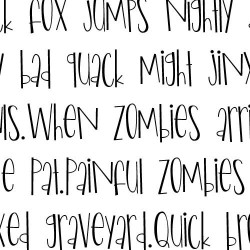 k fox jumps nightly
y bad quack might jinx
ls.When zombies arri
e pat.Painful zombies
ked graveyard.Quick br